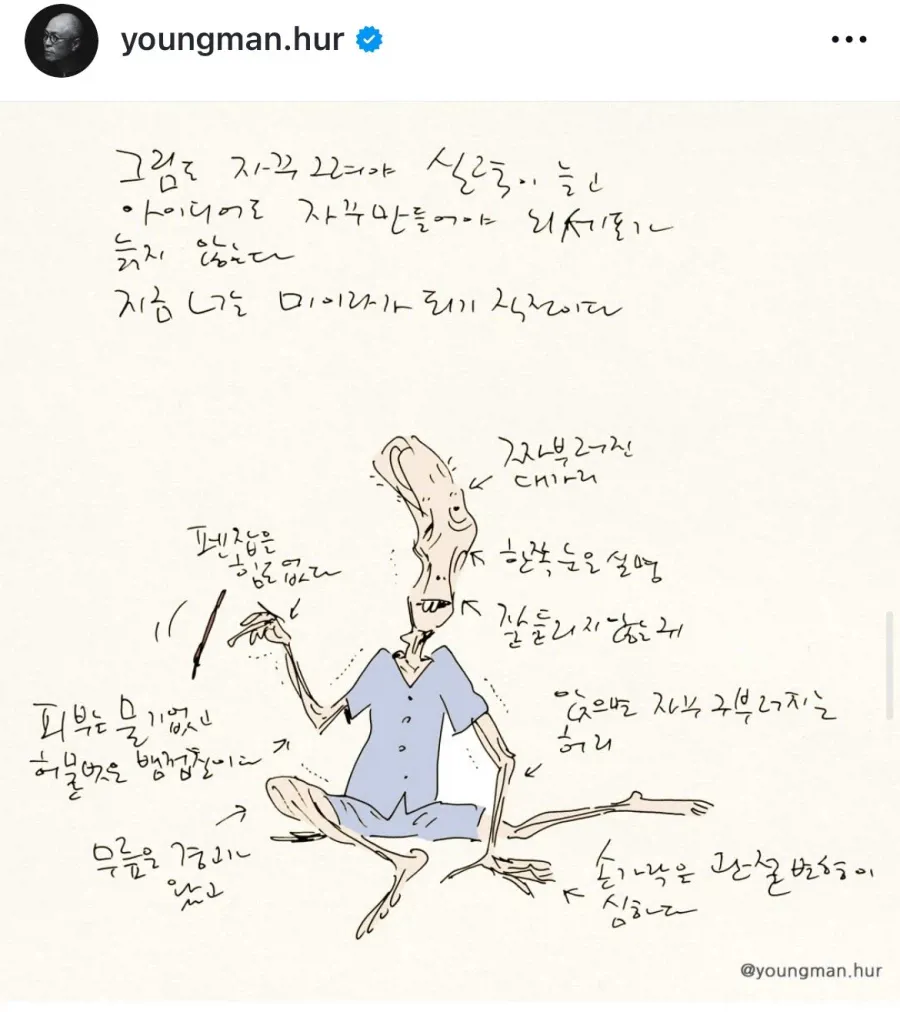 youngman.hur
그림도 자꾸 그려야 실력이 늘고
아이디어도 자꾸 만들어야 뇌세포가
늙지 않는다
지금 나는 미이라가 되기 직전이다
쭈부러진
대가리
펜 잡을
힘도 없다
한쪽 눈은 실명
잘 들리지 않는 귀
앉으면 자꾸 구부러지는
허리
피부는 물기 없고
허물 벗은 뱀 껍질이다
무릎은 경고가
왔고
손가락은 관절 변형이
심하다
@youngman.hur